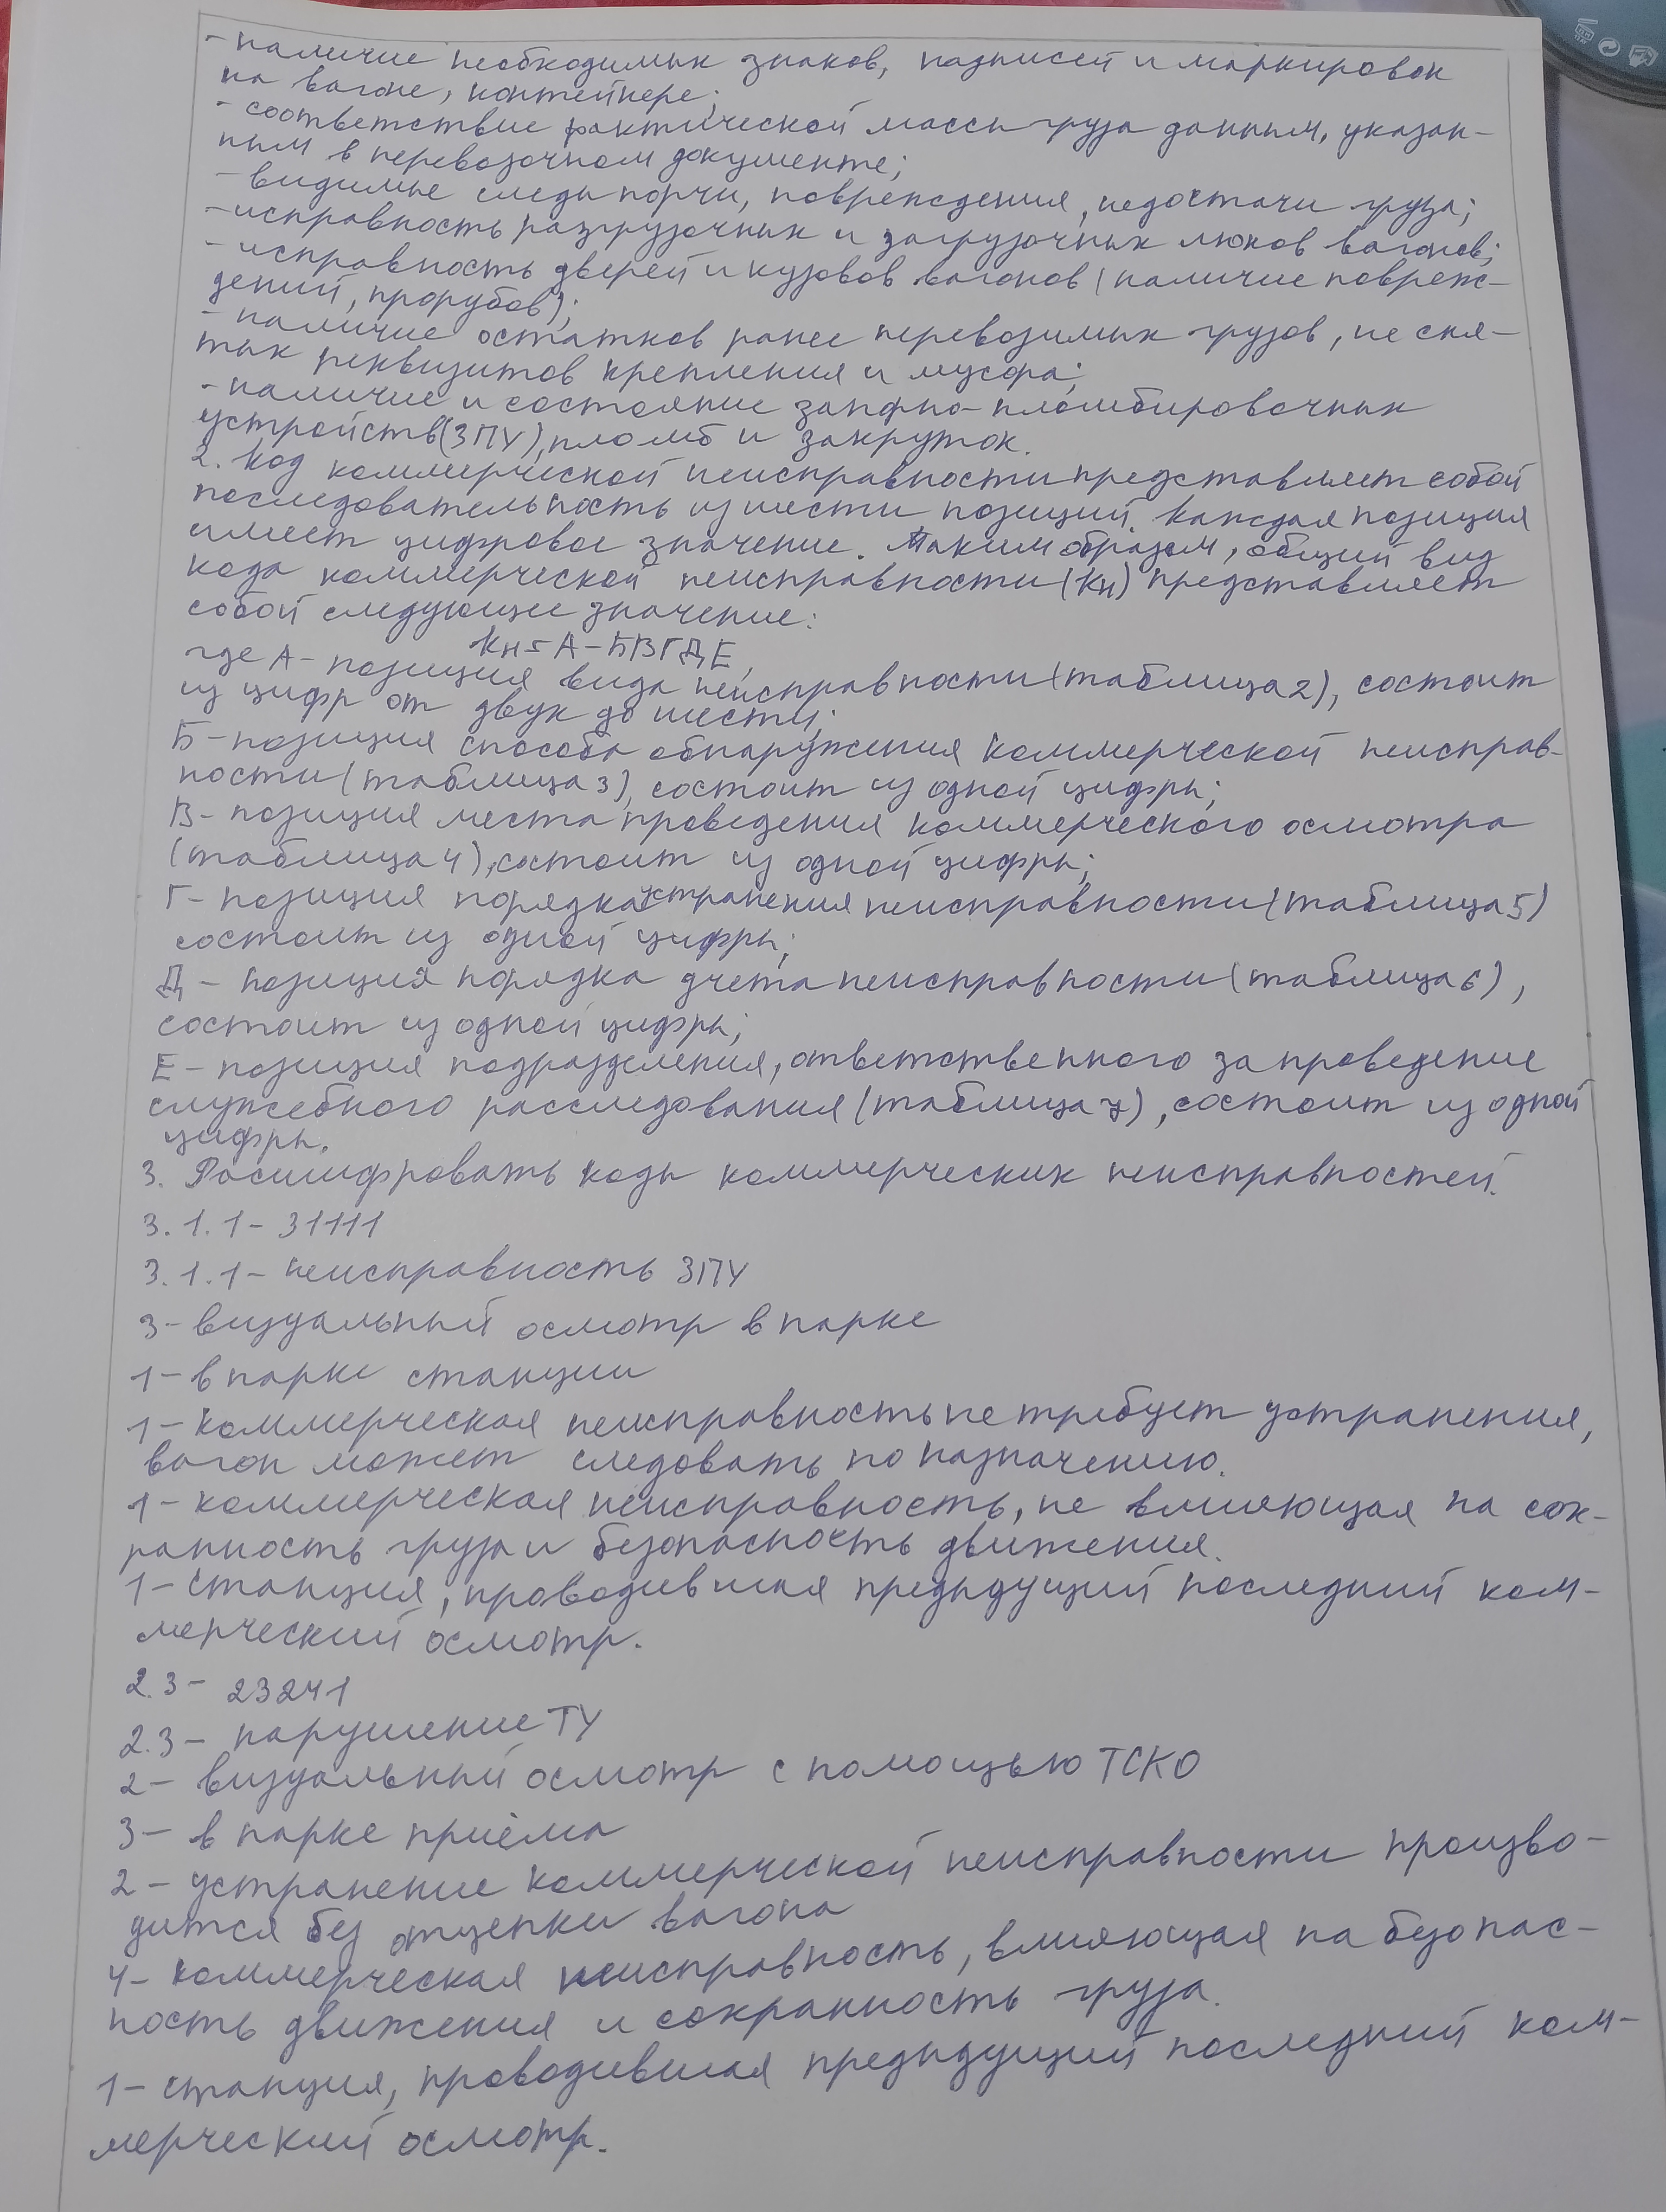 - наличие необходимых знаков, надписей и маркировок
на вагоне, контейнере;
- соответствие фактической массы груза данным, указан-
ным в перевозочном документе;
- видимые следы порчи, повреждения, недостачи груза;
- исправность разгрузочных и загрузочных люков вагонов;
- исправность дверей и кузовов вагонов (наличие повреж-
дений, прорубов);
- наличие остатков ранее перевозимых грузов, не сня-
тых реквизитов крепления и мусора;
- наличие и состояние запорно-пломбировочных
устройств(ЗПУ), пломб и закруток.
2. Код коммерческой неисправности представляет собой
последовательность из шести позиций. Каждая позиция
имеет цифровое значение. Таким образом, общий вид
кода коммерческой неисправности (Кн) представляет
собой следующее значение:
Кн = А-БВГДЕ,
где А- позиция вида неисправности (таблица 2), состоит
из цифр от двух до шести;
Б- позиция способа обнаружения коммерческой неисправ-
ности (таблица 3), состоит из одной цифры;
В- позиция места проведения коммерческого осмотра
(таблица 4), состоит из одной цифры;
Г- позиция порядка устранения неисправности (таблица 5)
состоит из одной цифры;
Д - позиция порядка учета неисправности (таблица 6),
состоит из одной цифры;
Е - позиция подразделения, ответственного за проведение
служебного расследования (таблица 7), состоит из одной
цифры.
3. Расшифровать коды коммерческих неисправностей.
3.1.1- 31111
3.1.1- неисправность ЗПУ
3- визуальный осмотр в парке
1- в парке станции
1- коммерческая неисправность не требует устранения,
вагон может следовать по назначению.
1- коммерческая неисправность, не влияющая на сох-
ранность груза и безопасность движения.
1- станция, проводившая предыдущий последний ком-
мерческий осмотр.
2.3- 23241
2.3- нарушение ТУ
2- визуальный осмотр с помощью ТСКО
3- в парке приёма
2- устранение коммерческой неисправности произво-
дится без отцепки вагона
4- коммерческая неисправность, влияющая на безопас-
ность движения и сохранность груза.
1- станция, проводившая предыдущий последний ком-
мерческий осмотр.